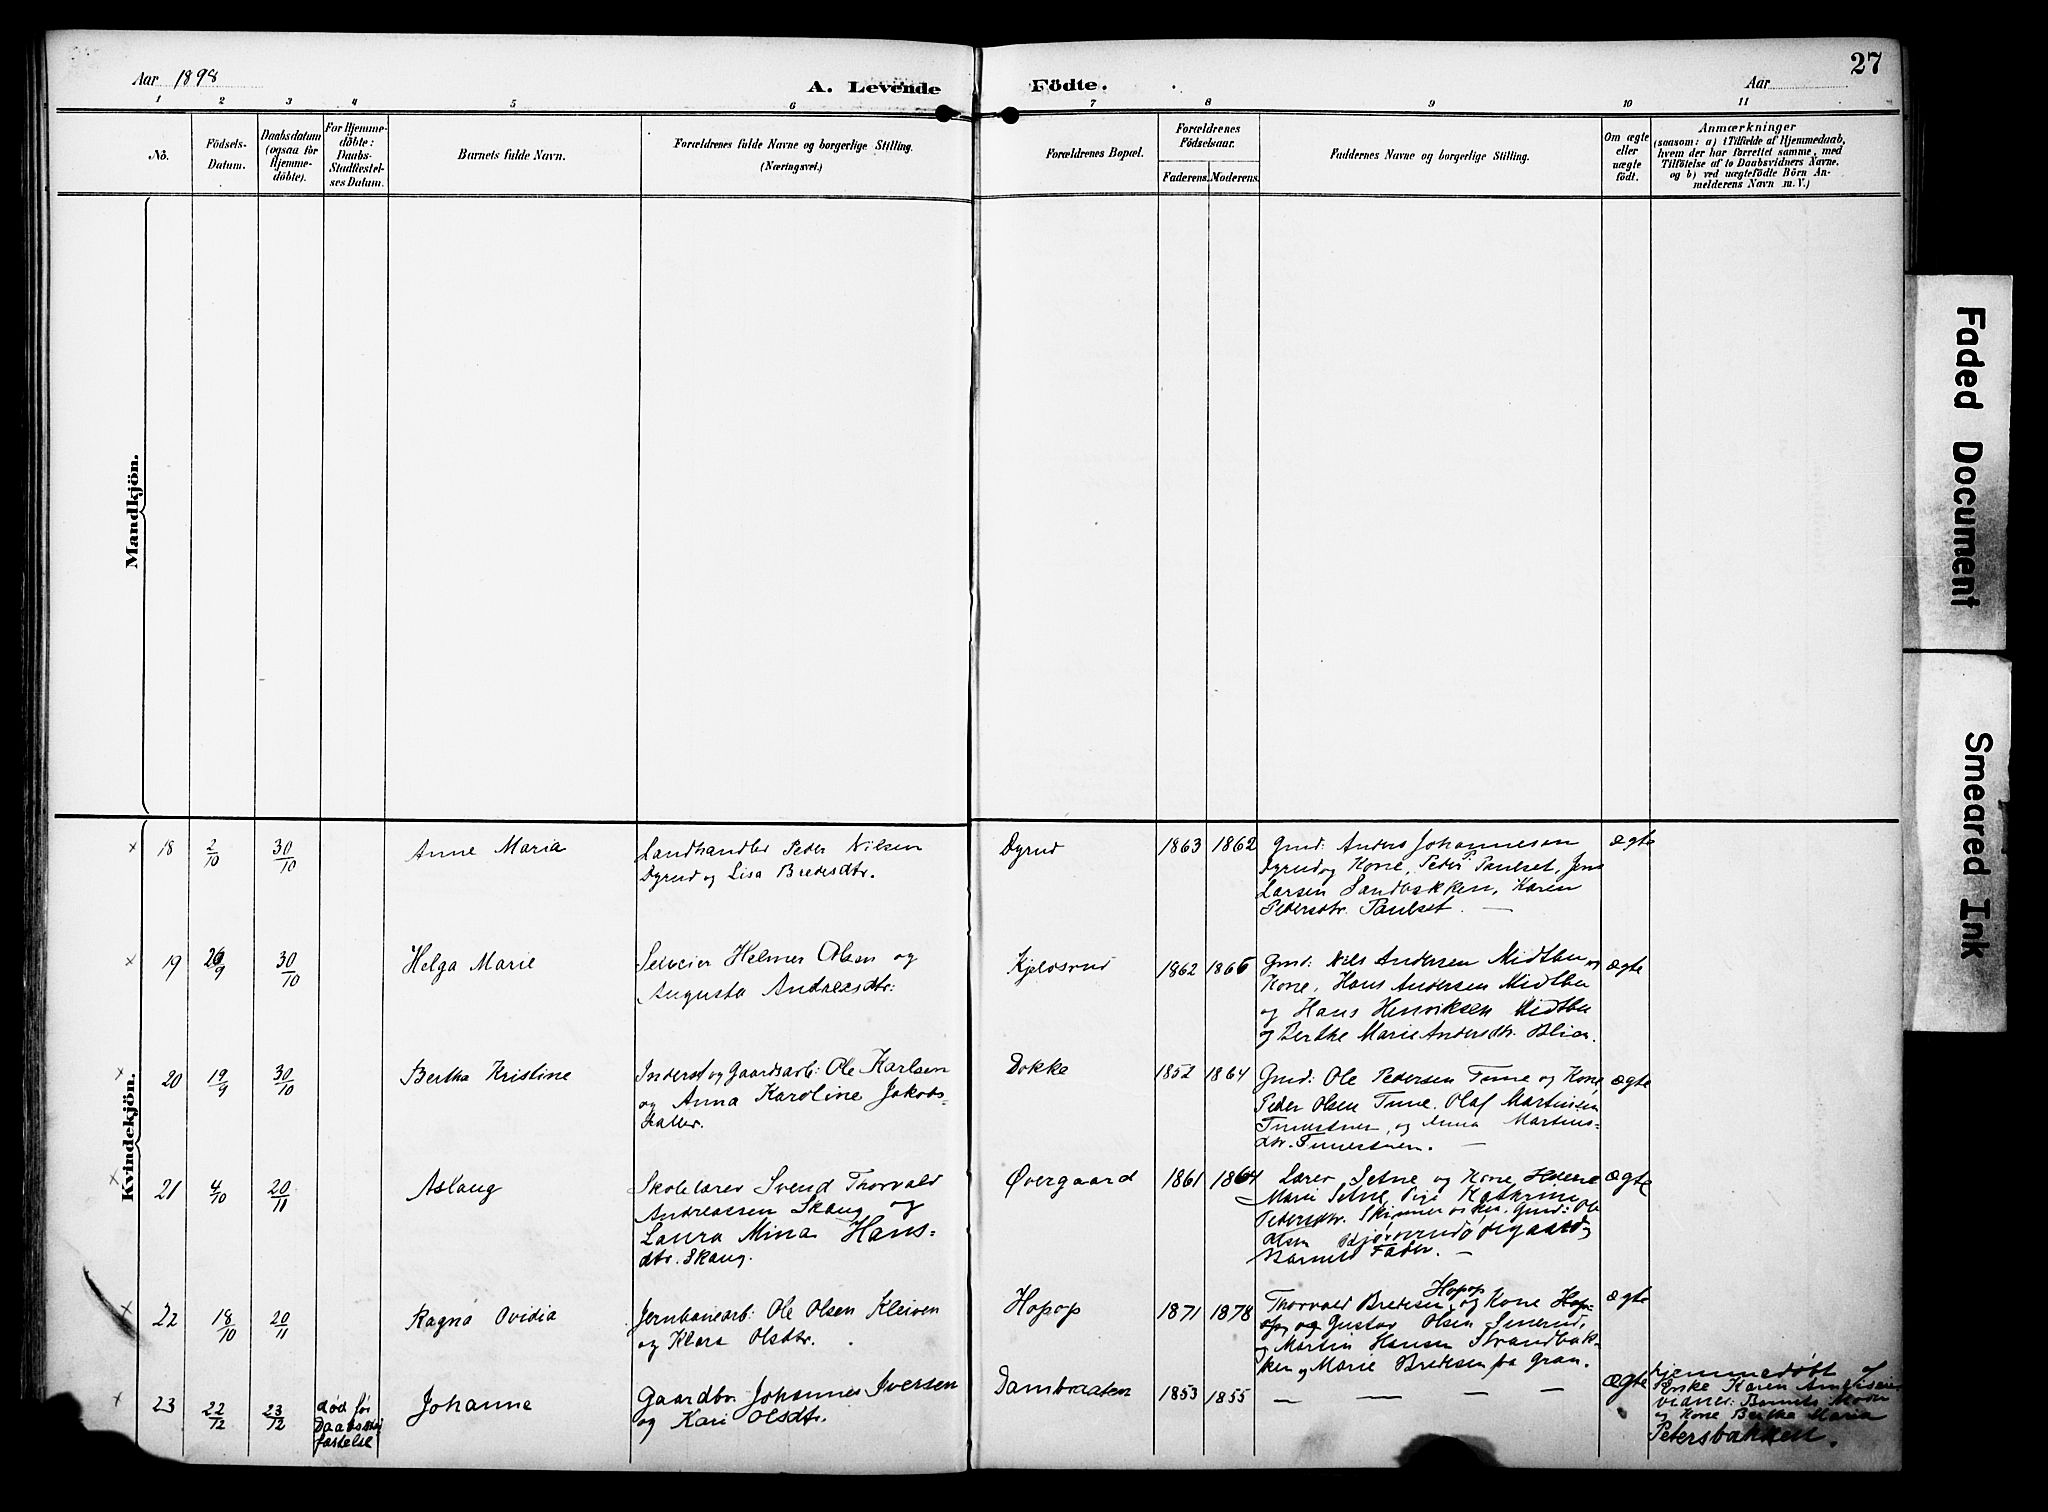 27
Aar 1898
A. Levende Födte.
Aar
1 2 3 4 5 6 7 8 9 10 11
Nô.
Födsels-
Datum.
Daabsdatum
(ogsaa for
Hjemme-
döbte).
For Hjemme-
döbte:
Daabs-
Stadfestel-
ses Datum.
Barnets fulde Navn.
Forældrenes fulde Navne og borgerlige Stilling.
(Næringsvei.)
Forældrenes Bopæl.
Forældrenes
Födselsaar.
Faderens. Moderens.
Faddernes Navne og borgerlige Stilling.
Om ægte
eller
uægte
födt.
Anmærkninger
(saasom: a) i Tilfælde af Hjemmedaab,
hvem der har forrettet samme, med
Tilföielse af to Daabsvidners Navne.
og b) ved uægtefödte Börn An-
melderens Navn m. V.)
Mandkjön.
Kvindekjön.
× 18 2/10 30/10 Anne Maria
Landhandler Peder Nilsen
Dyrud og Lisa Bredesdtr.
Dyrud 1863 1862
Gmd: Anders Johannesen
Dyrud og Kone, Peder P. Paulset, Jens
Larsen Sandbakken, Karen
Pedersdtr. Paulset. —
ægte
× 19 26/9 30/10 Helga Marie
Selveier Helmer Olsen og
Augusta Andreasdtr:
Kjelosrud 1862 1866
Gmd: Nils Andersen Midtbu og
Kone, Hans Andersen Midtbu
og Hans Henriksen Midtbu
og Berthe Marie Andersdtr. Blien.
ægte
× 20 19/9 30/10 Bertha Kristine
Inderst og Gaardsarb: Ole Karlsen
og Anna Karoline Jakobs-
datter.
Dokke 1852 1864
Gmd: Ole Pedersen Tune og Kone,
Peder Olsen Tune, Olaf Martinsen
Tunestuen, og Anna Martins-
dtr. Tunestuen. —
ægte
× 21 4/10 20/11 Aslaug
Skolelærer Svend Thorvald
Andreassen Skaug og
Laura Mina Hans-
dtr. Skaug.
Øvergaard 1861 1864
Lærer Setne og Kone Helene
Marie Setne, Pige Kathrine
Pedersdtr. Skinnerviken, Gmd: Ole
Olsen Ødegaard og
Barnets Fader. —
ægte
× 22 18/10 20/11 Ragna Ovidia
Jernbanearb: Ole Olsen Kleiven
og Klara Olsdtr.
Hopop 1871 1878
Hopop
Thorvald Bredesen og Kone Hop-
op, og Gustav Olsen Smerud,
og Martin Hansen Strandbak-
ken og Marie Bredesen fra Gran.
ægte
× 23 22/12 23/12
død før
Daabsstad
fæstelse
Johanne
Gaardbr. Johannes Iversen
og Kari Olsdtr.
Dambraaten 1853 1855
— — — —
ægte
Hjemmedøbt af
Enke Karen
Vidner: Barnets Moder
og Kone Berthe Maria
Petersbakken.
Faded Document
Smeared Ink